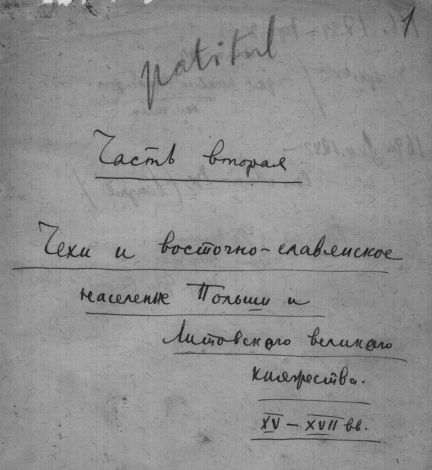 1
patitul
Часть вторая
Чехи и восточно-славянское
население Польши и
Литовского великого
княжества.
XV – XVII вв.